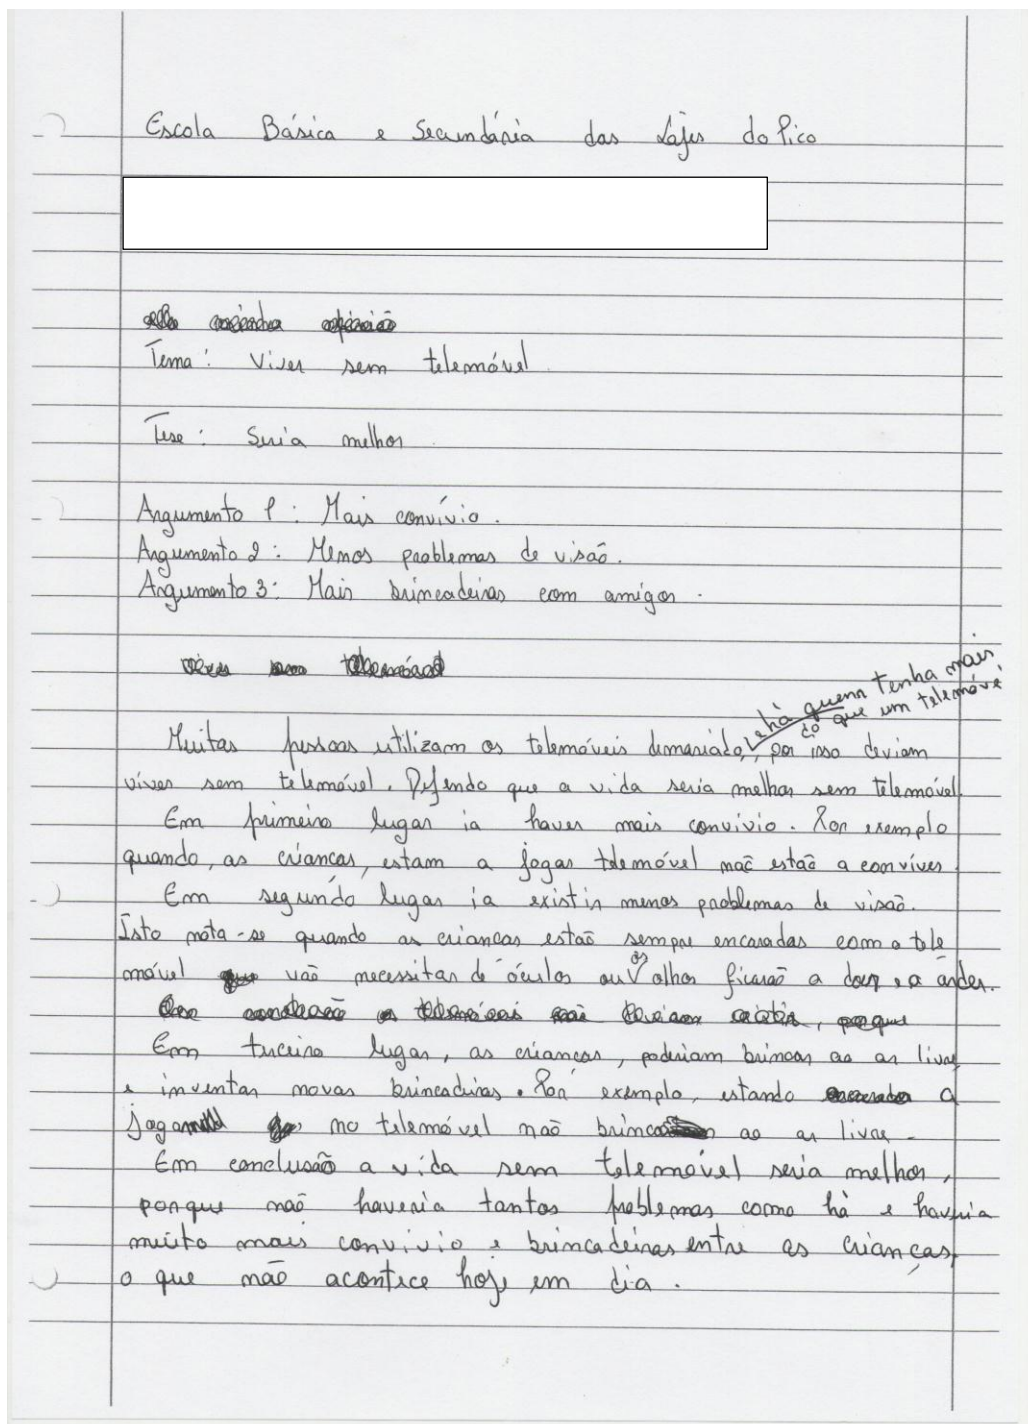 Escola Básica e Secundária das Lajes do Pico
Tema: Viver sem telemóvel
Tese: Seria melhor.
Argumento 1: Mais convívio.
Argumento 2: Menos problemas de visão.
Argumento 3: Mais brincadeiras com amigos.
e há quem tenha mais
do que um telemóvel
Muitas pessoas utilizam os telemóveis demasiado, por isso deviam
viver sem telemóvel. Defendo que a vida seria melhor sem telemóvel.
Em primeiro lugar ia haver mais convivio. Por exemplo
quando, as crianças, estam a jogar telemóvel não estão a conviver.
Em segundo lugar ia existir menos problemas de visão.
Isto nota-se quando as crianças estão sempre encaradas com o tele
móvel vão necessitar de óculos ou os olhos ficarão a doer e a arder.
Em terceiro lugar, as crianças, poderiam brincar ao ar livre
e inventar novas brincadeiras. Por exemplo, estando a
jogar no telemóvel não brincam ao ar livre.
Em conclusão a vida sem telemóvel seria melhor,
porque não haveria tantos problemas como há e haveria
muito mais convivio e brincadeiras entre as crianças,
o que não acontece hoje em dia.